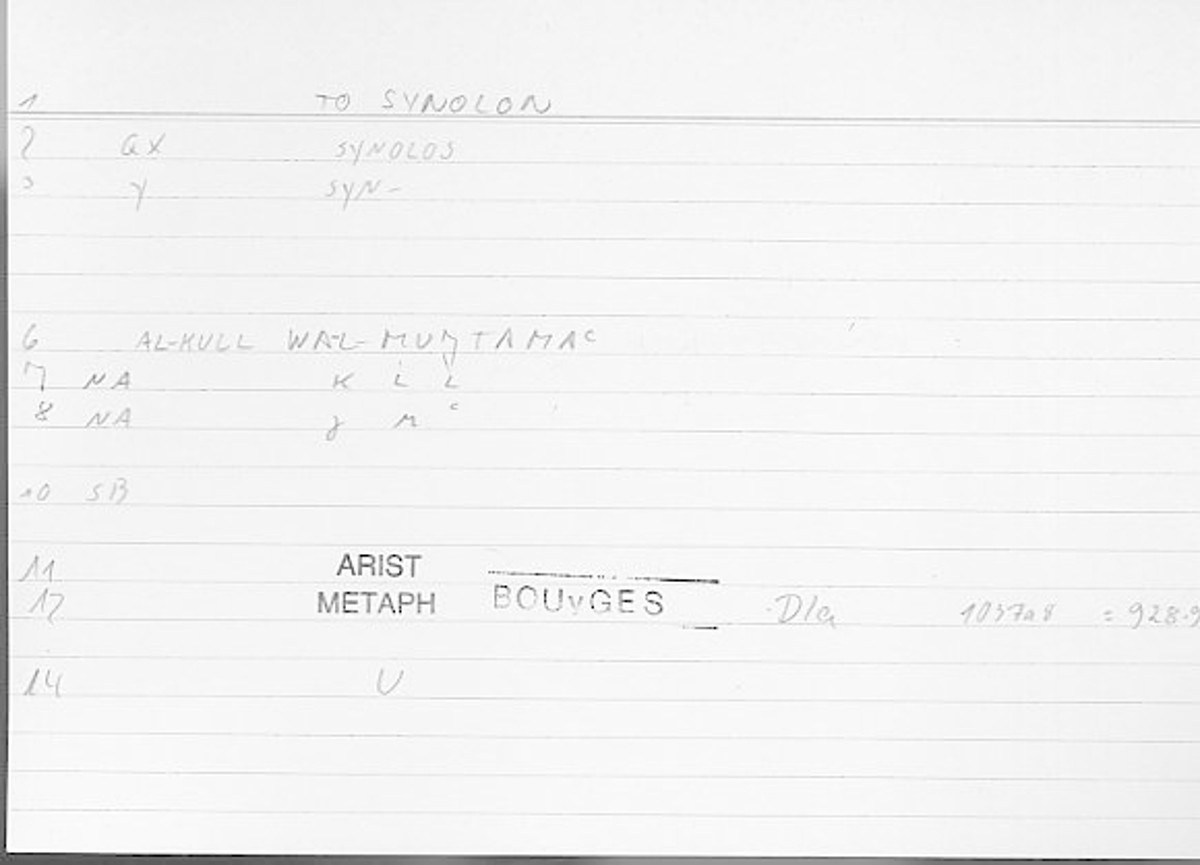 1 TO SYNOLON
2 ax SYNOLOS
3 y SYN-
6 AL-KULL WAL-MUǦTAMAᶜ
7 NA K L L
8 NA ǧ M ᶜ
10 SB
11 ARIST
12 METAPH BOUyGES D1a 1037a8 = 928.9
14 U